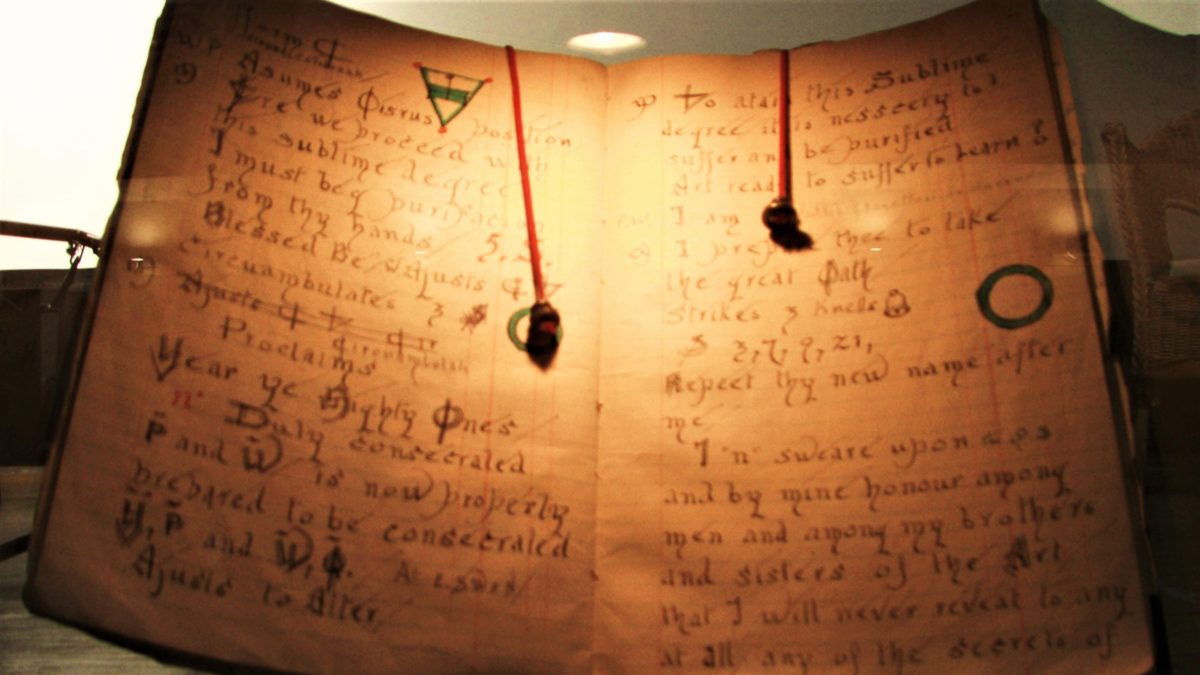 Asumes Osirus position
Erel we proceed with
this sublime degree
I must beg purifacion
from thy hands
Blessed Be
Circuambulates 3
Ajusts
Proclaims Circumambulate
Hear ye Mighty Ones
"n" Duly consecrated
P and W is now properly
prepared to be consecrated
H, P and W,
Ajusts to Alter
To atain this Sublime
degree it is nessecry to
suffer and be purified
Art ready to suffer to Learn ?
I am
I prepare thee to take
the great Oath
Strikes 3 knels
3, 7, 9, 21,
Repeet thy new name after
me
I "n" sweare upon
and by mine honour among
men and among my brothers
and sisters of the Art
that I will never reveal to any
at all any of the secrets of